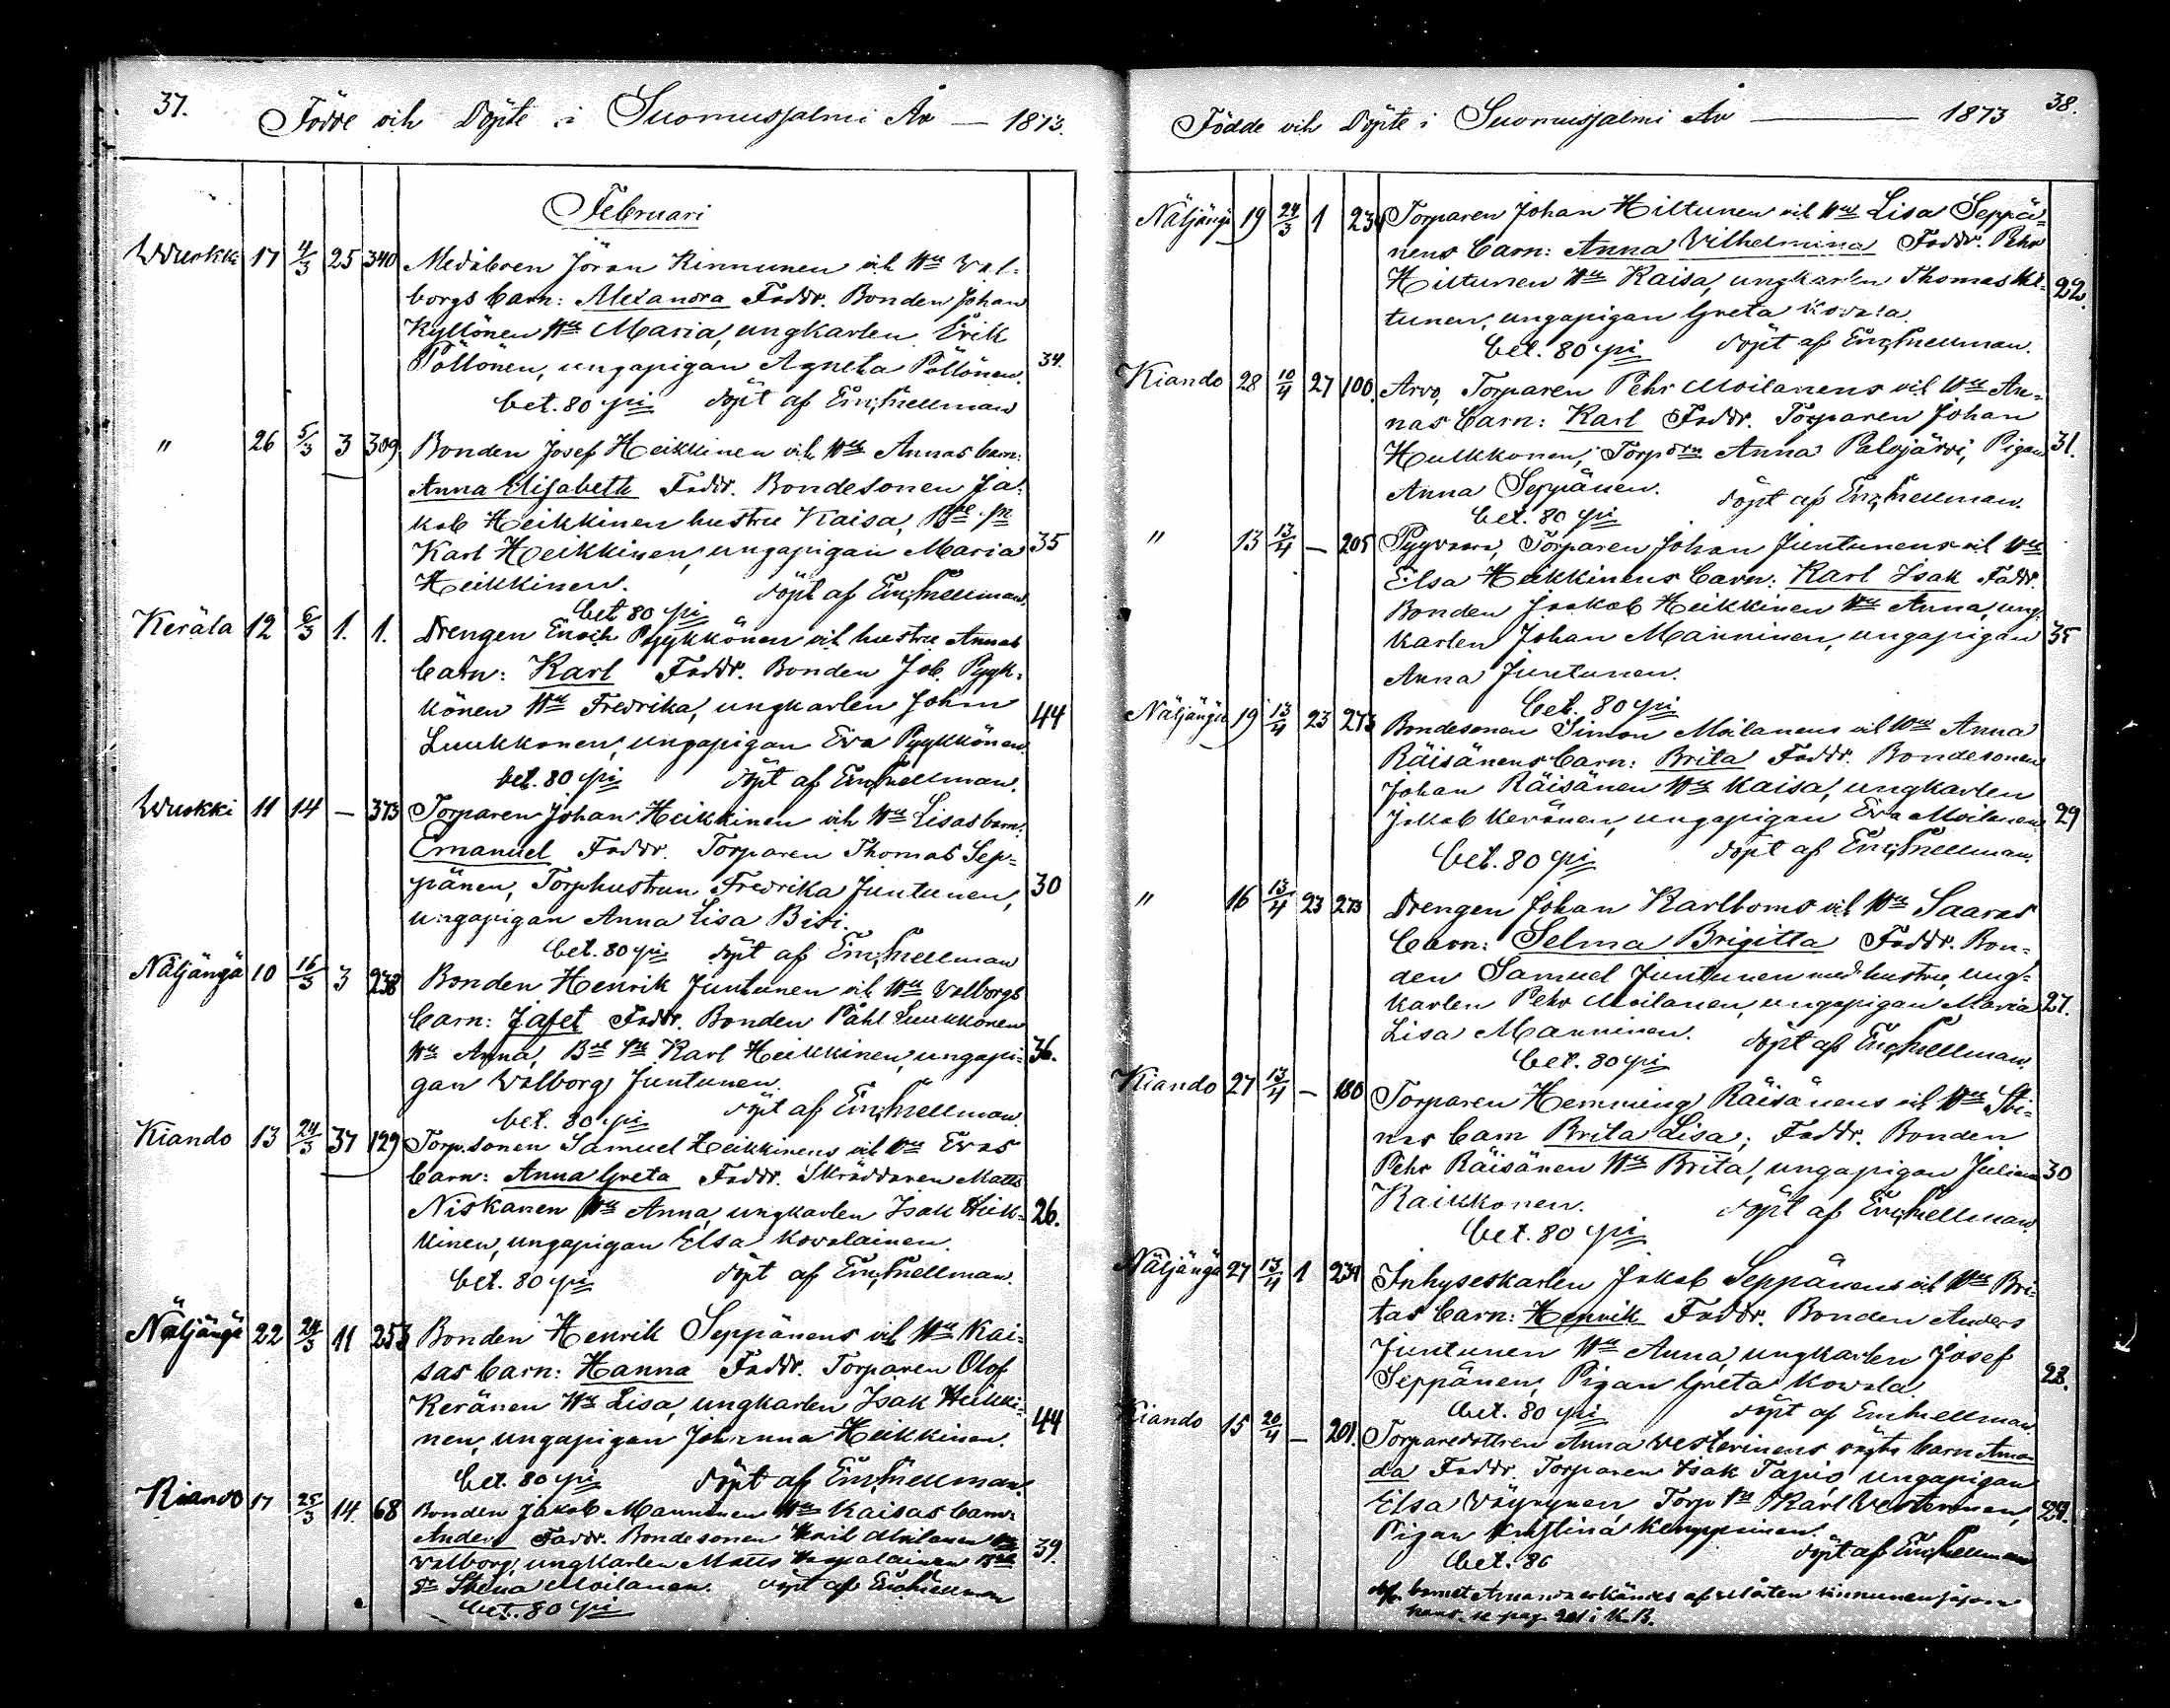 37.
Födde och Döpte i Suomussalmi År — 1873.
Februari
Wuokki 17 4/3 25 340 Medåboen Jöran Kinnunen och Hu Wal-
borgs barn: Alexandra Faddr. Bonden Johan
Kyllönen Hu Maria, ungkarlen Erik
Pöllönen, ungapigan Agneta Pöllönen. 34.
bet. 80 pi döpt af Em. Snellman
" 26 5/3 3 309 Bonden Josef Heikkinen och Hu Annas barn:
Anna Elisabeth Faddr. Bondesonen Ja-
kob Heikkinen hustru Kaisa,
Karl Heikkinen, ungapigan Maria 35
Heikkinen. döpt af Em. Snellman.
bet 80 pi
Kerälä 12 6/3 1. 1. Drengen Enoch Pyykkönen och hustru Annas
barn: Karl Faddr. Bonden Job Pyyk-
könen Hu Fredrika, ungkarlen John 44
Luukkonen, ungapigan Eva Pyykkönen
bet. 80 pi döpt af Em. Snellman.
Wuokki 11 14 — 373 Torparen Johan Heikkinen och Hu Lisas barn:
Emanuel Faddr. Torparen Thomas Sep-
pänen, Torphustrun Fredrika Juntunen, 30
ungapigan Anna Lisa Bisi.
bet. 80 pi döpt af Em. Snellman
Näljängä 10 16/3 3 238 Bonden Henrik Juntunen och Hu Walborgs
barn: Jafet Faddr. Bonden Påhl Luukkonen
Hu Anna, Karl Heikkinen, ungapi- 36.
gan Walborg Juntunen.
bet. 80 pi döpt af Em. Snellman.
Kiando 13 24/3 37 129 Torp.sonen Samuel Heikkinens och Hu Evas
barn: Anna Greta Faddr. Skräddaren Matts
Niskanen Hu Anna, ungkarlen Isak Heik- 26.
kinen, ungapigan Elsa Kowalainen.
bet. 80 pi döpt af Em. Snellman.
Näljängä 22 24/3 11 253 Bonden Henrik Seppänens och Hu Kai-
sas barn: Hanna Faddr. Torparen Olof
Keränen Hu Lisa, ungkarlen Isak Heikki- 44
nen, ungapigan Johanna Heikkinen.
bet. 80 pi döpt af Em. Snellman.
Kiando 17 25/3 14. 68 Bonden Jakob Manninen Hu Kaisas barn:
Anders Faddr. Bondesonen Moilanen Hu
Walborg, ungkarlen Matts 39.
Moilanen. döpt af Em. Snellman
bet. 80 pi
38.
Födde och Döpte i Suomussalmi År — 1873
Näljängä 19 24/3 1 234 Torparen Johan Hiltunen och Hu Lisa Seppä-
nens barn: Anna Vilhelmina Faddr. Pehr
Hiltunen Hu Kaisa, ungkarlen Thomas Hil- 22.
tunen, ungapigan Greta Kovala.
bet. 80 pi döpt af Em. Snellman.
Kiando 28 10/4 27 100. Arvo, Torparen Pehr Moilanens och Hu An-
nas barn: Karl Faddr. Torparen Johan
Hulkkonen, Anna Palojärvi, Pigan 31.
Anna Seppänen. döpt af Em. Snellman.
bet. 80 pi
" 13 13/4 — 205 Torparen Johan Juntunens och Hu
Elsa Heikkinens barn: Karl Isak Faddr.
Bonden Jaakob Heikkinen Hu Anna, ung-
karlen Johan Manninen, ungapigan 35
Anna Juntunen.
bet. 80 pi
Näljängä 19 13/4 23 273 Bondesonen Simon Moilanens och Hu Anna
Räisänens barn: Brita Faddr. Bondesonen
Johan Räisänen Hu Kaisa, ungkarlen
Jakob Keränen, ungapigan Eva Moilanen 29
bet. 80 pi döpt af Em. Snellman.
" 16 13/4 23 273 Drengen Johan Karlboms och Hu Saaras
barn: Selma Brigitta Faddr. Bon-
den Samuel Juntunen med hustru, ung-
karlen Pehr Moilanen, ungapigan Maria 27.
Lisa Manninen. döpt af Em. Snellman.
bet. 80 pi
Kiando 27 13/4 — 180 Torparen Hemming Räisänens och Hu Sti-
nas barn Brita Lisa; Faddr. Bonden
Pehr Räisänen Hu Brita, ungapigan Juliana 30
Raikkonen. döpt af Em. Snellman
bet. 80 pi
Näljängä 27 13/4 1 234 Inhyseskarlen Jakob Seppänens och Hu Bri-
tas barn: Henrik Faddr. Bonden Anders
Juntunen Hu Anna, ungkarlen Josef
Seppänen, Pigan Greta Kowala. 28.
bet. 80 pi döpt af Em. Snellman
Kiando 15 20/4 — 201. Torparedottren Anna Westerinens oägta barn Aman-
da Faddr. Torparen Isak Tapio, ungapigan
Elsa Väyrynen, Karl Westerinen, 29.
Pigan Kristina Kemppainen.
bet. 80 döpt af Em. Snellman
barnet Amanda erkändes af Kinnunen såsom
hans. se pag 201 i K. B.